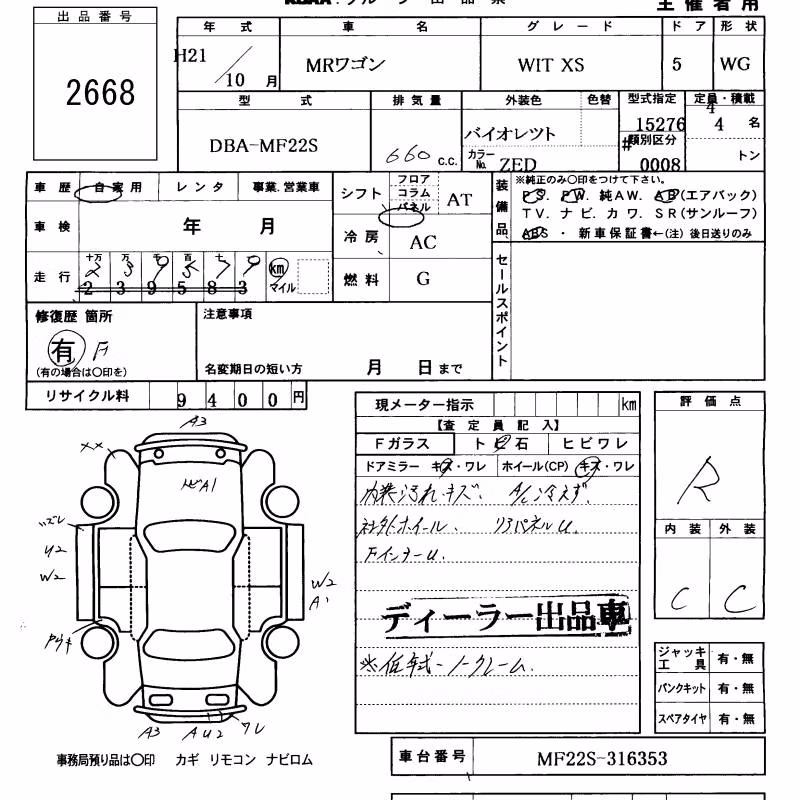 出品番号
2668
年式 車名 グレード ドア 形状
H21/10月 MRワゴン WIT XS 5 WG
型式 排気量 外装色 色替 型式指定 定員・積載
DBA-MF22S 660 c.c. バイオレツト 15276 4 4 名
カラーNo. ZED #類別区分 0008 トン
車歴 自家用 レンタ 事業.営業車
シフト フロア コラム パネル AT
装備品 ※純正のみ○印をつけて下さい。
PS. PW. 純AW. AB(エアバック)
TV. ナビ. カワ. SR(サンルーフ)
ABS ・ 新車保証書←(注) 後日送りのみ
車検 年 月
冷房 AC
走行 十万 万 千 百 十
239579 km マイル
239583
燃料 G
セールスポイント
修復歴 箇所
有 F
(有の場合は○印を)
注意事項
名変期日の短い方 月 日まで
リサイクル料 9400円
現メーター指示 km
【査定員記入】
Fガラス トビ石 ヒビワレ
ドアミラー キズ・ワレ ホイール(CP) キズ・ワレ
内装汚れキズ. A/C冷えず.
社外ホイール. リアパネルU.
FインナーU.
ディーラー出品車
※低年式ノークレーム.
評価点
R
内装 外装
C C
ジャッキ工具 有・無
パンクキット 有・無
スペアタイヤ 有・無
A3
××
トビA1
ズレ
U2
W2
W2
A1
A3 AU2 ワレ
事務局預り品は○印 カギ リモコン ナビロム
車台番号 MF22S-316353